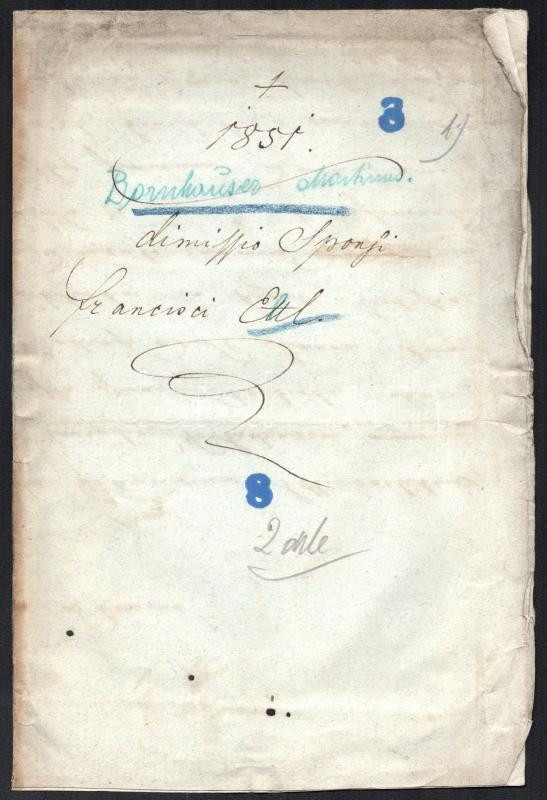 +
1851.
8
Bornhauser Martinus.
dimissio Sponsi
francisci Ettl.
8
2 drb